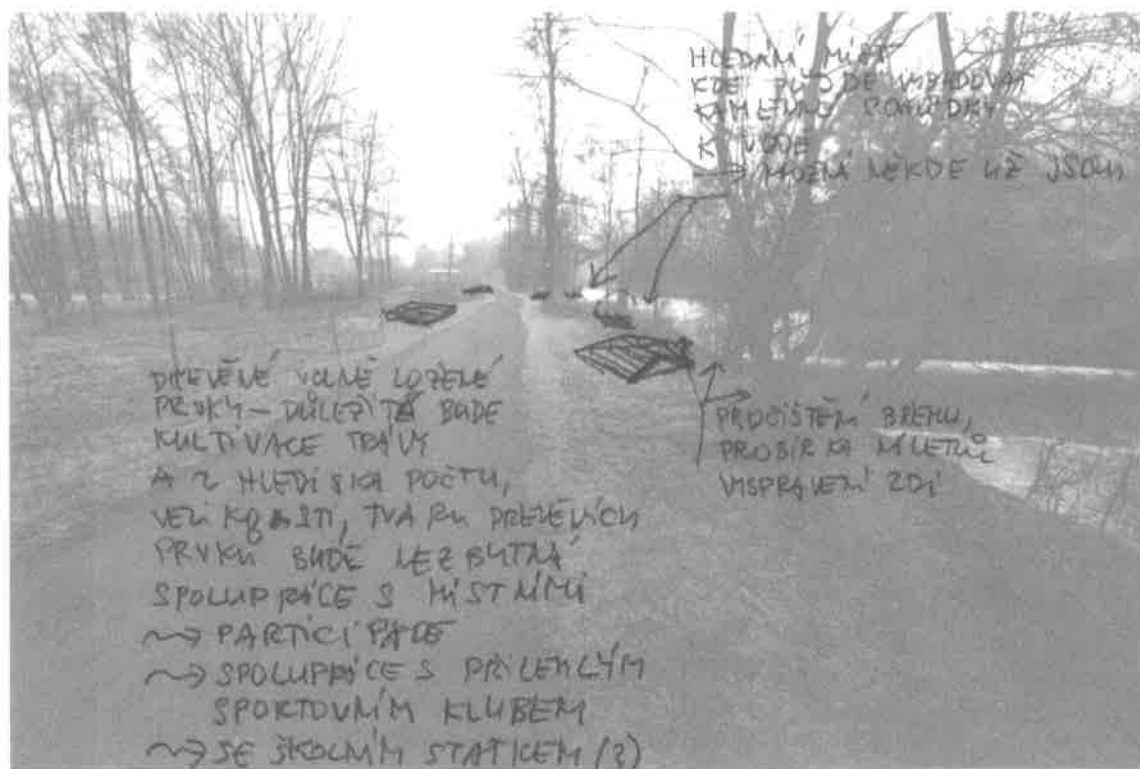 HLEDÁNÍ MÍST
KDE PŮJDE VYBUDOVAT
KAMENNÉ SCHŮDKY
K VODĚ
→ MOŽNÁ NĚKDE UŽ JSOU
DŘEVĚNÉ VOLNĚ LOŽENÉ
PRVKY – DŮLEŽITÁ BUDE
KULTIVACE TRÁVY
A Z HLEDISKA POČTU,
VELIKOSTI, TVARU DŘEVĚNÝCH
PRVKŮ BUDE NEZBYTNÁ
SPOLUPRÁCE S MÍSTNÍMI
→ PARTICIPACE
→ SPOLUPRÁCE S PŘILEHLÝM
SPORTOVNÍM KLUBEM
→ SE ŠKOLNÍM STATKEM (?)
PROČIŠTĚNÍ BŘEHU,
PROBÍRKA NÁLETŮ
VYSPRAVENÍ ZDI